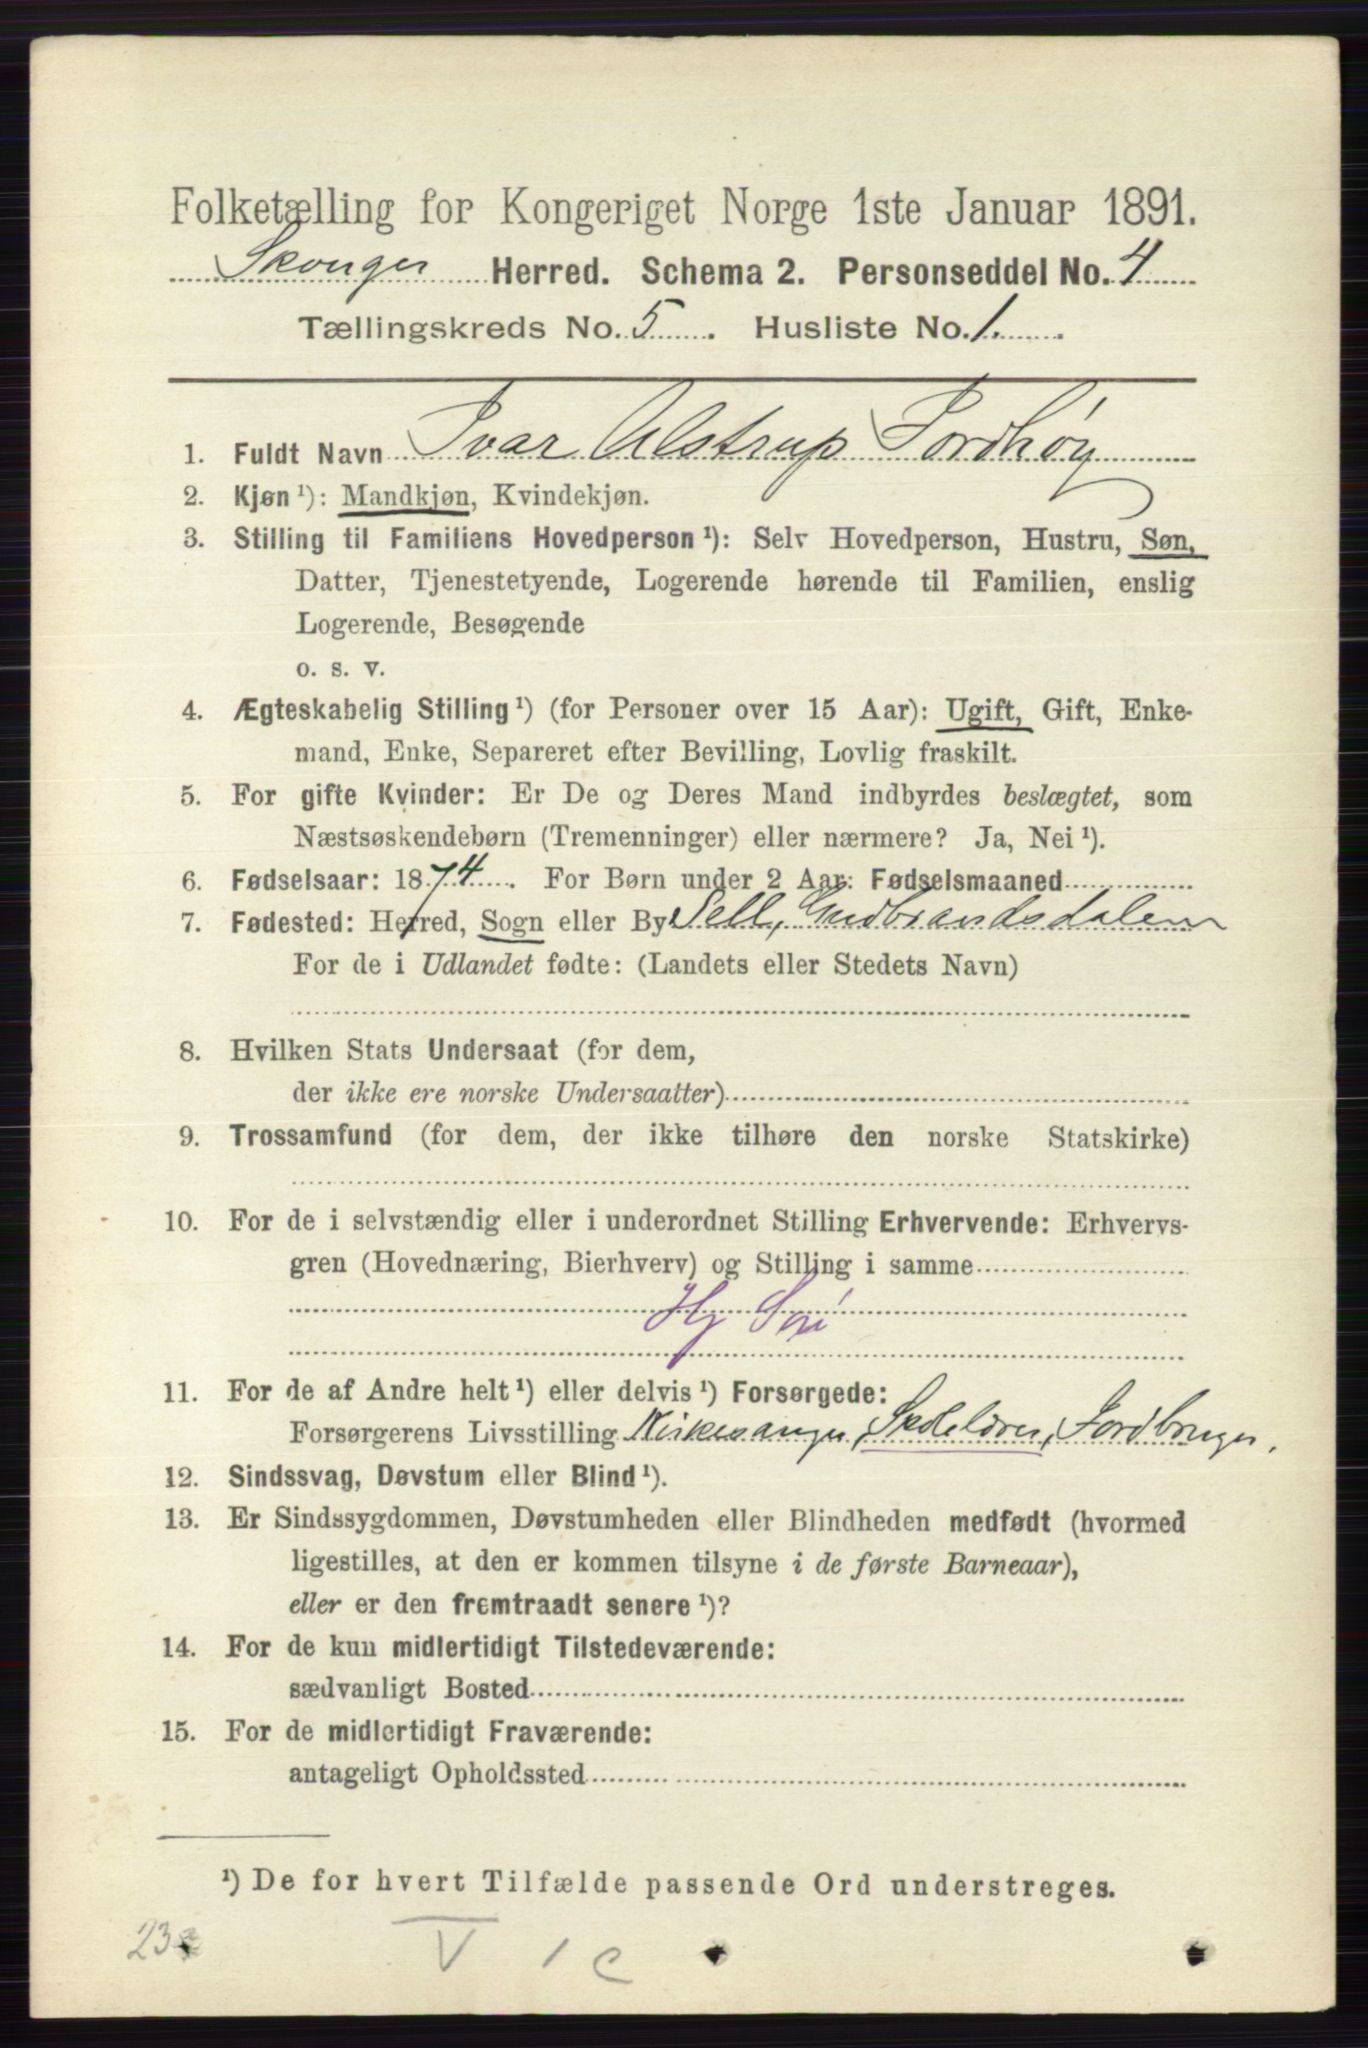 Folketælling for Kongeriget Norge 1ste Januar 1891.
Skouger Herred. Schema 2. Personseddel No. 4
Tællingskreds No. 5. Husliste No. 1.
1. Fuldt Navn Ivar Alstrup Jordhøy
2. Kjøn ¹): Mandkjøn, Kvindekjøn.
3. Stilling til Familiens Hovedperson ¹): Selv Hovedperson, Hustru, Søn,
Datter, Tjenestetyende, Logerende hørende til Familien, enslig
Logerende, Besøgende
o. s. v.
4. Ægteskabelig Stilling ¹) (for Personer over 15 Aar): Ugift, Gift, Enke-
mand, Enke, Separeret efter Bevilling, Lovlig fraskilt.
5. For gifte Kvinder: Er De og Deres Mand indbyrdes beslægtet, som
Næstsøskendebørn (Tremenninger) eller nærmere? Ja, Nei ¹).
6. Fødselsaar: 1874. For Børn under 2 Aar: Fødselsmaaned
7. Fødested: Herred, Sogn eller By Sell, Gudbrandsdalen
For de i Udlandet fødte: (Landets eller Stedets Navn)
8. Hvilken Stats Undersaat (for dem,
der ikke ere norske Undersaatter)
9. Trossamfund (for dem, der ikke tilhøre den norske Statskirke)
10. For de i selvstændig eller i underordnet Stilling Erhvervende: Erhvervs-
gren (Hovednæring, Bierhverv) og Stilling i samme
11. For de af Andre helt ¹) eller delvis ¹) Forsørgede:
Forsørgerens Livsstilling Kirkesanger, Skolelærer, Jordbruger.
12. Sindssvag, Døvstum eller Blind ¹).
13. Er Sindssygdommen, Døvstumheden eller Blindheden medfødt (hvormed
ligestilles, at den er kommen tilsyne i de første Barneaar),
eller er den fremtraadt senere ¹)?
14. For de kun midlertidigt Tilstedeværende:
sædvanligt Bosted
15. For de midlertidigt Fraværende:
antageligt Opholdssted
¹) De for hvert Tilfælde passende Ord understreges.
V 1 c